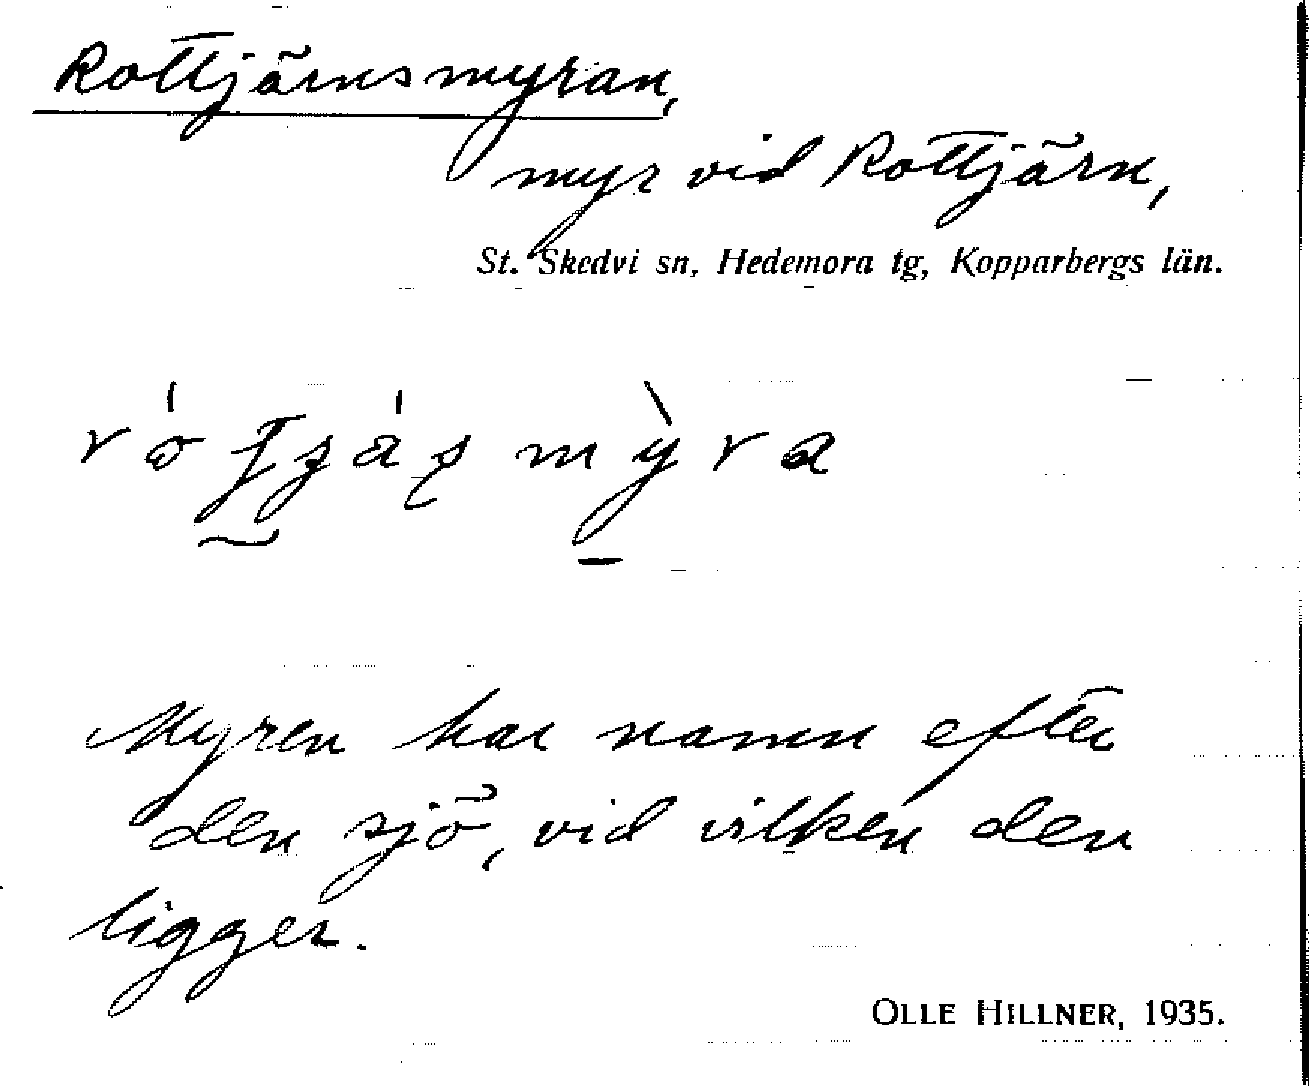 Rottjärnsmyran,
myr vid Rottjärn,
St. Skedvi sn, Hedemora tg, Kopparbergs län.
Myren har namn efter
den sjö, vid vilken den
ligger.
OLLE HILLNER, 1935.